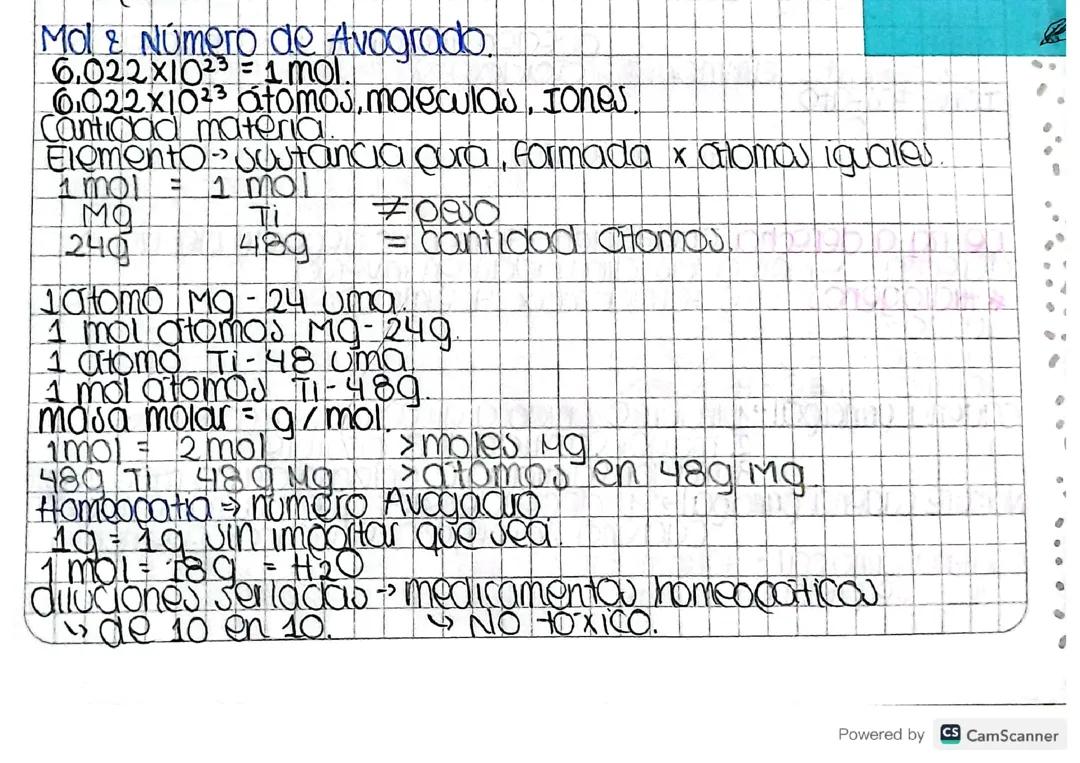 Mol & Número de Avogrado.
6,022x10²³ = 1 mol.
6,022x10²³ átomos, moléculas, Iones.
Cantidad materia.
Elemento → sustancia pura, formada x átomos iguales.
1 mol = 1 mol
Mg Ti ≠ peso
24g 48g = cantidad átomos.
1 átomo Mg - 24 uma.
1 mol átomos Mg - 24g.
1 átomo Ti - 48 uma.
1 mol átomos Ti - 48g.
masa molar = g/mol.
1mol = 2 mol >moles Mg
48g Ti 48g Mg >átomos en 48g Mg.
Homeopatía → número Avogadro
1g = 1g sin importar que sea.
1 mol = 18g = H2O
diluciones seriadas → medicamentos homeopáticos
↳ de 10 en 10. ↳ NO tóxico.
Powered by CS CamScanner